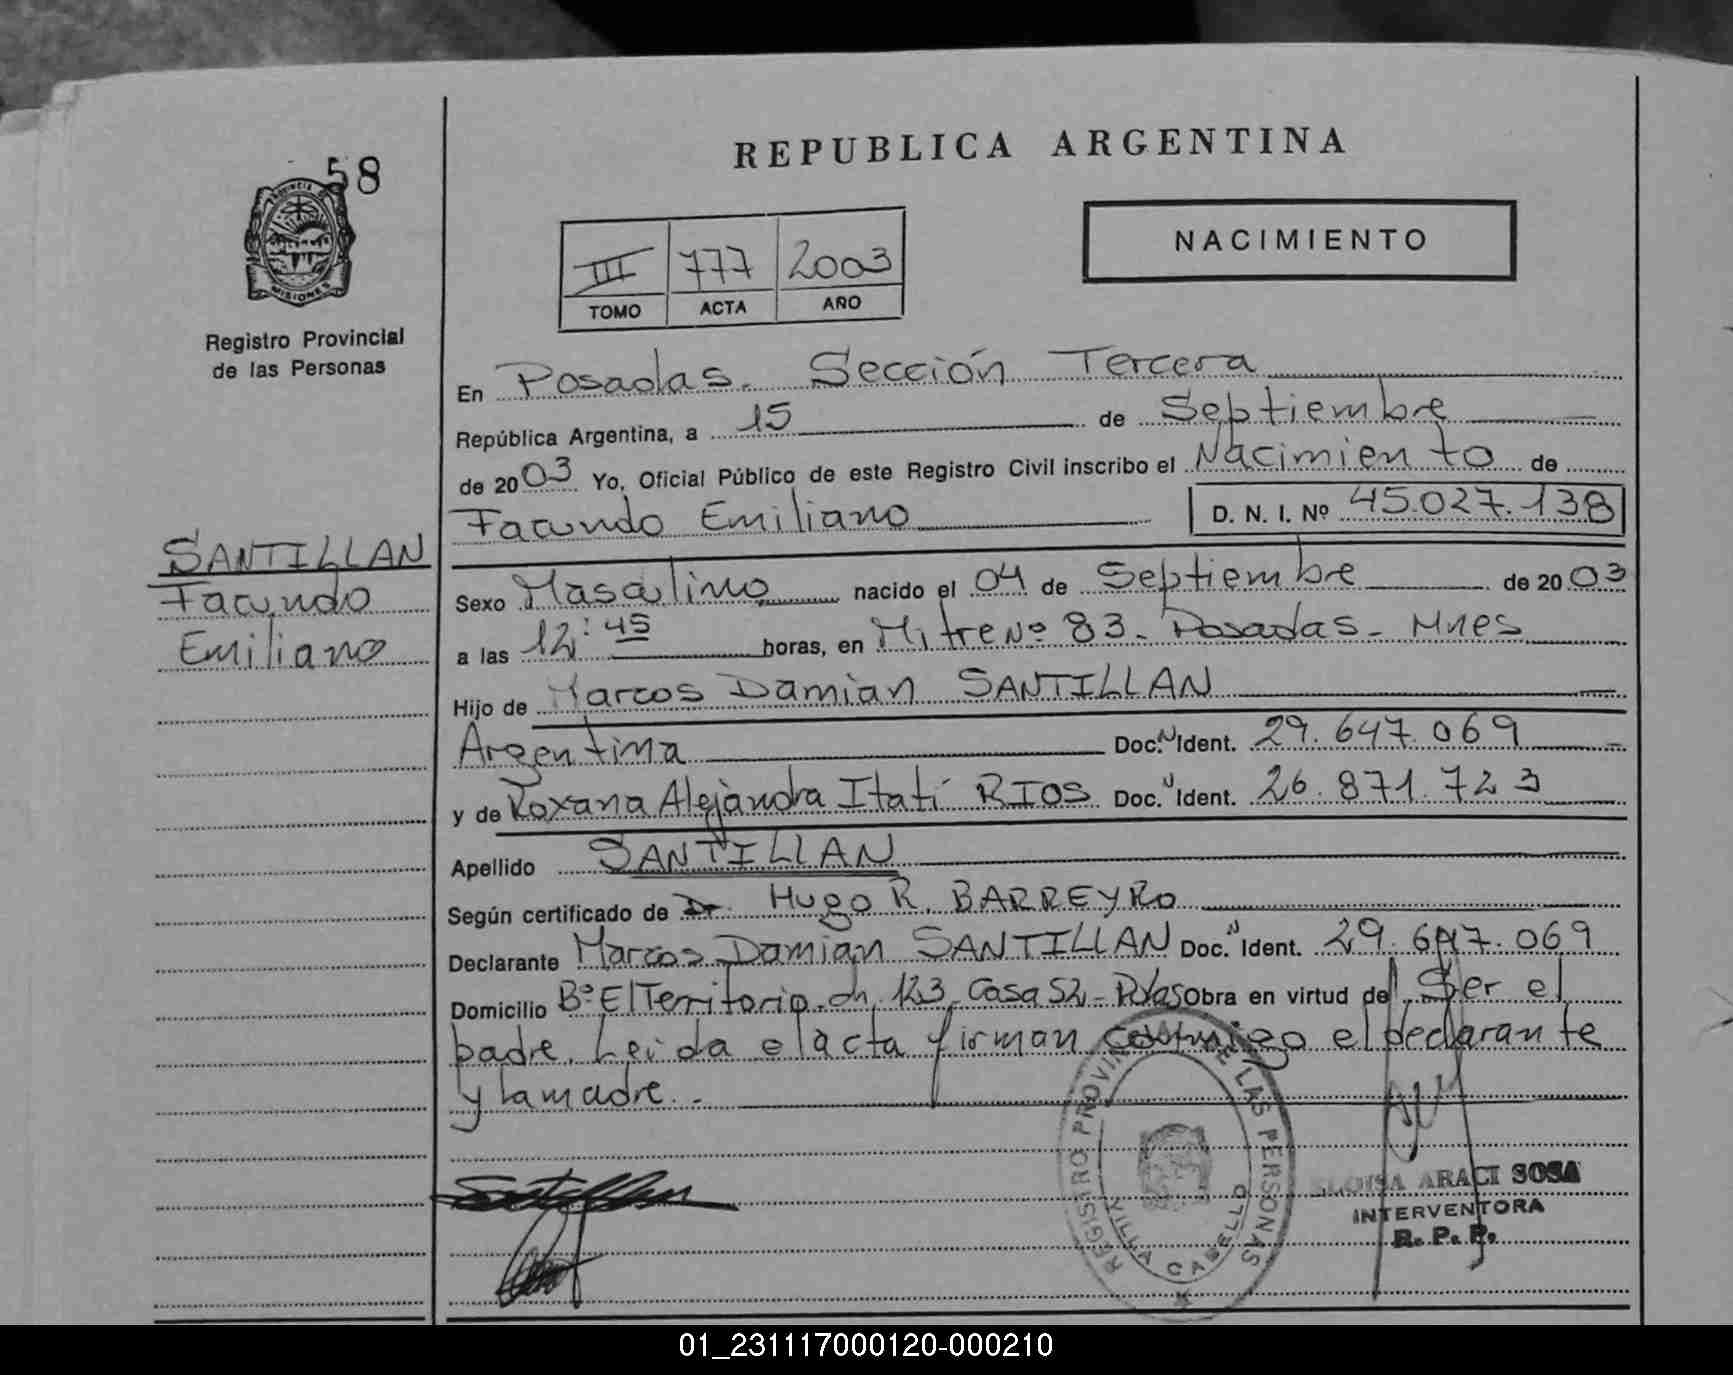 58
PROVINCIA DE
MISIONES
Registro Provincial
de las Personas
SANTILLAN
Facundo
Emiliano
REPUBLICA ARGENTINA
III 777 2003
TOMO ACTA AÑO
NACIMIENTO
En Posadas. Sección Tercera
República Argentina, a 15 de Septiembre
de 2003 Yo, Oficial Público de este Registro Civil inscribo el Nacimiento de
Facundo Emiliano D. N. I. Nº 45.027.138
Sexo Masculino nacido el 04 de Septiembre de 2003
a las 12:45 horas, en Mitre Nº 83. Posadas - Mnes
Hijo de Marcos Damian SANTILLAN
Argentina Doc. N Ident. 29.647.069
y de Roxana Alejandra Itatí RIOS Doc. N Ident. 26.871.723
Apellido SANTILLAN
Según certificado de Dr. Hugo R. BARREYRO
Declarante Marcos Damian SANTILLAN Doc. N Ident. 29.647.069
Domicilio Bº El Territorio. ch. 123. Casa 52 - Pdas Obra en virtud de Ser el
padre. Leida el acta firman conmigo el declarante
y la madre.-
REGISTRO PROVINCIAL DE LAS PERSONAS
VILLA CABELLO
Santillan
ELOISA ARACI SOSA
INTERVENTORA
R. P. P.
01_231117000120-000210